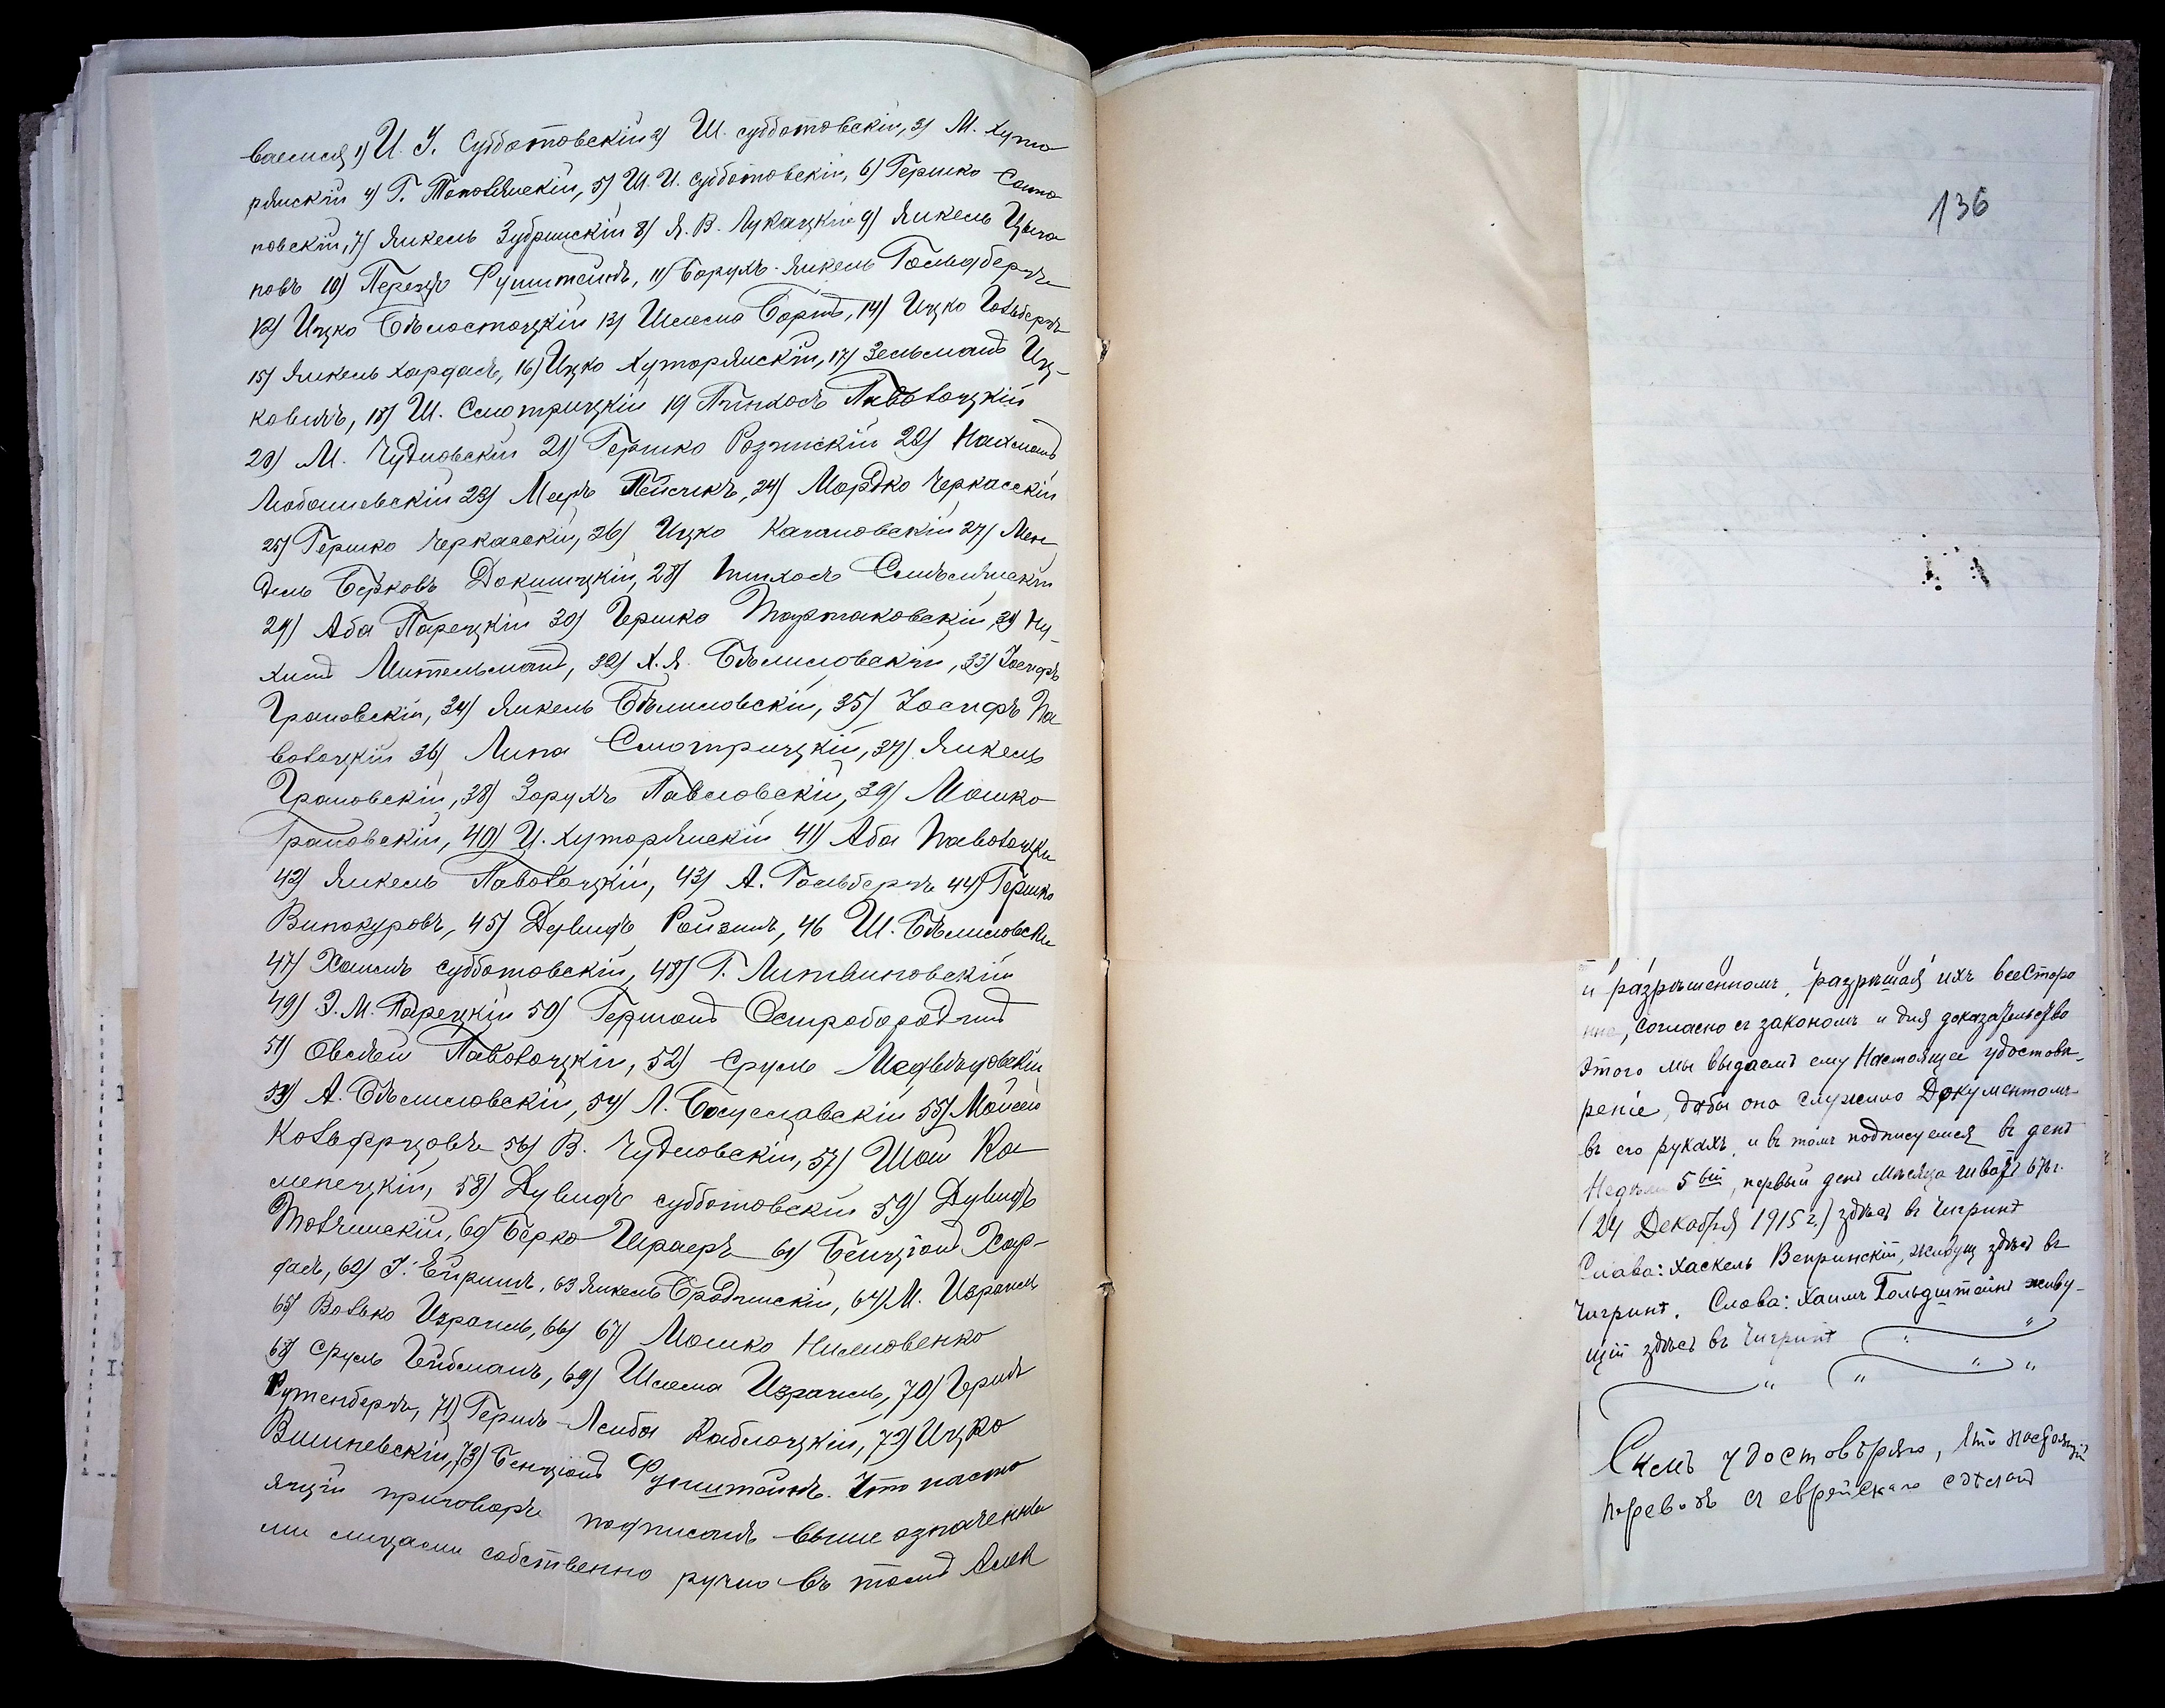 ваемся 1) И. І. Субботовскій 2) Ш. субботовскій, 3) М. Хуто
рянскій 4) Г. Тополянскій, 5) Ш. И. субботовскій, 6) Гершко
новскій, 7) Янкель Зубринскій 8) Я. В. Лукацкій 9) Янкель Цыга
новъ 10) Перецъ Фуиштейнъ, 11) Борухъ-Янкель Гольдбергъ
12) Ицко Бѣлостоцкій 13) Шлема Бортъ, 14) Ицко Гольбергъ
15) Янкель Хардасъ, 16) Ицко Хуторянскій, 17) Зельманъ Иц-
ковичъ, 18) Ш. Смотрицкій 19 Пинхосъ Паволоцкій
20) М. Чудновскій 21) Гершко Розинскій 22) Нахманъ
Любашевскій 23) Меръ Пейсикъ, 24) Мордко Черкасскій
25) Гершко Черкасскій, 26) Ицко Качановскій 27) Мен
дель Берковъ Докшицкій, 28) Пинхосъ Смѣлянскій
29) Аба Парецкій 30) Гершко Партаковскій, 31) Ну-
химъ Мительманъ, 32) Х. Я. Бѣлиловскій, 33) Іосифъ
Грановскій, 34) Янкель Бѣлиловскій, 35) Іосифъ Па
волоцкій 36) Липа Смотрицкій, 37) Янкель
Грановскій, 38) Зорухъ Павловскій, 39) Мошко
Грановскій, 40) И. Хуторянскій 41) Аба Паволоцкій
42) Янкель Паволоцкій, 43) А. Гольбергъ 44) Гершко
Винокуровъ, 45) Дувидъ Ройзинъ, 46 Ш. Бѣлиловскій
47) Хаимъ субботовскій, 48) Г. Литвиновскій
49) З. М. Парецкій 50) Германъ Остробородкинъ
51) Овсей Паволоцкій, 52) Сруль Медвѣдовскій
53) А. Бѣлиловскій, 54) Л. Богуславскій 55) Мойсей
56) В. Чудновскій, 57) Шая Ка
менецкій, 58) Дувидъ субботовскій 59) Дувидъ
Толчинскій, 60) Берко Шраеръ 61) Бенціонъ Хар-
дасъ, 62) І. Ейришъ, 63 Янкель Бродинскій, 64) М. Израиль
65) Волько Израиль, 66) 67) Мошко Нилновенко
68) Сруль Гейбманъ, 69) Шлема Израиль, 70) Гершъ
Рутенбергъ, 71) Гершъ-Лейба Каблоцкій, 72) Ицко
Вишневскій, 73) Бенціонъ Фуиштейнъ. Что насто
ящій приговоръ подписанъ выше означенны
ми лицами собственно ручно въ томъ
136
и разрѣшенномъ, разрѣшая ихъ всесторо
нне, согласно съ закономъ и для доказательства
этого мы выдаемъ ему настоящее удостовѣ-
реніе, дабы оно служило документомъ
въ его рукахъ, и въ томъ подписуемся въ день
Недѣли 5ый, первый день мѣсяца тиватъ 676 г.
(24 Декабря 1915 г.) здѣсь въ Чигринѣ
Слава: Хаскель Вепринскій, живущ здѣсь въ
Чигринѣ. Слова: Хаимъ Гольдштейнъ живу-
щій здѣсь въ Чигринѣ
Симъ удостовѣряю, что настоящій
переводъ съ еврейскаго сдѣланъ